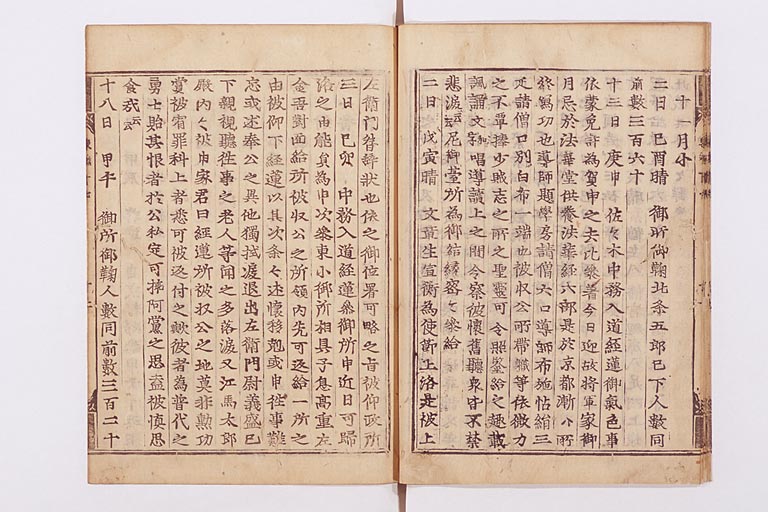 十一月小
二日 己酉晴 御所御鞠北条五郎已下人數同
前數三百六十
十三日 庚申 佐々木中務入道経蓮御氣色事
依蒙免許為賀申之去比參著今日迎故将軍家御
月忌於法華堂供養法華経六部是於京都漸々所
終寫功也導師題學房請僧六口導師布施帖絹三
疋請僧口別白布一端也被収公所帶軄等依微力
之不覃捧少賎志之所之聖靈可令照鑒給之趣載
諷誦文字唱導讀上之間令察彼懷舊聽衆皆不禁
悲涙云云尼御臺所為御結縁密々參給
二日 戊寅晴 文章生宣衡為使節上洛是被上
左衛門督辞状也依之御位署可略之旨被仰政所
三日 己卯 中務入道経蓮參御所申近日可歸
洛之由能員為申次參東小御所相具子息高重左
金吾對面給所被収公之所領内先可返給一所之
由被仰下経蓮以其次条々述懷移剋或申往事難
忘或述奉公之異他獨拭涙退出左衛門尉義盛已
下親視聽往事之老人等聞之多落涙又江馬太郎
殿内々被申家君曰経蓮所被収公之地莫非勲功
賞被宥罪科上者悉可被返付之歟彼者為普代之
勇士貽其恨者於公私定可挿阿黨之思盍被慎思
食哉云云
十八日 甲午 御所御鞠人數同前數三百二十